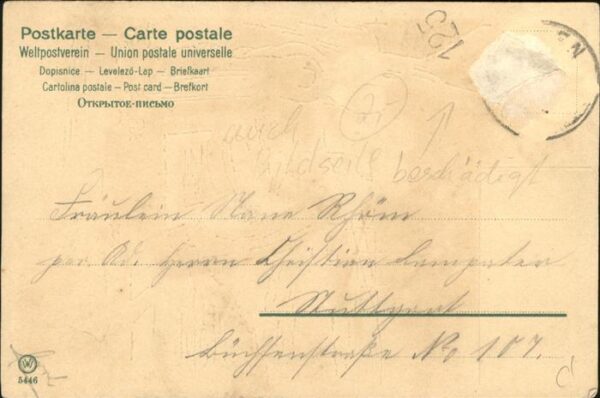 Postkarte — Carte postale
Weltpostverein — Union postale universelle
Dopisnice — Levelező-Lap — Briefkaart
Cartolina postale — Post card — Brefkort
Открытое-письмо
120
EN
auch
Bildseite beschädigt
Fräulein Rhöm
per Ad. Herrn Christian
Stuttgart
Büchsenstraße No 107.
W
5446